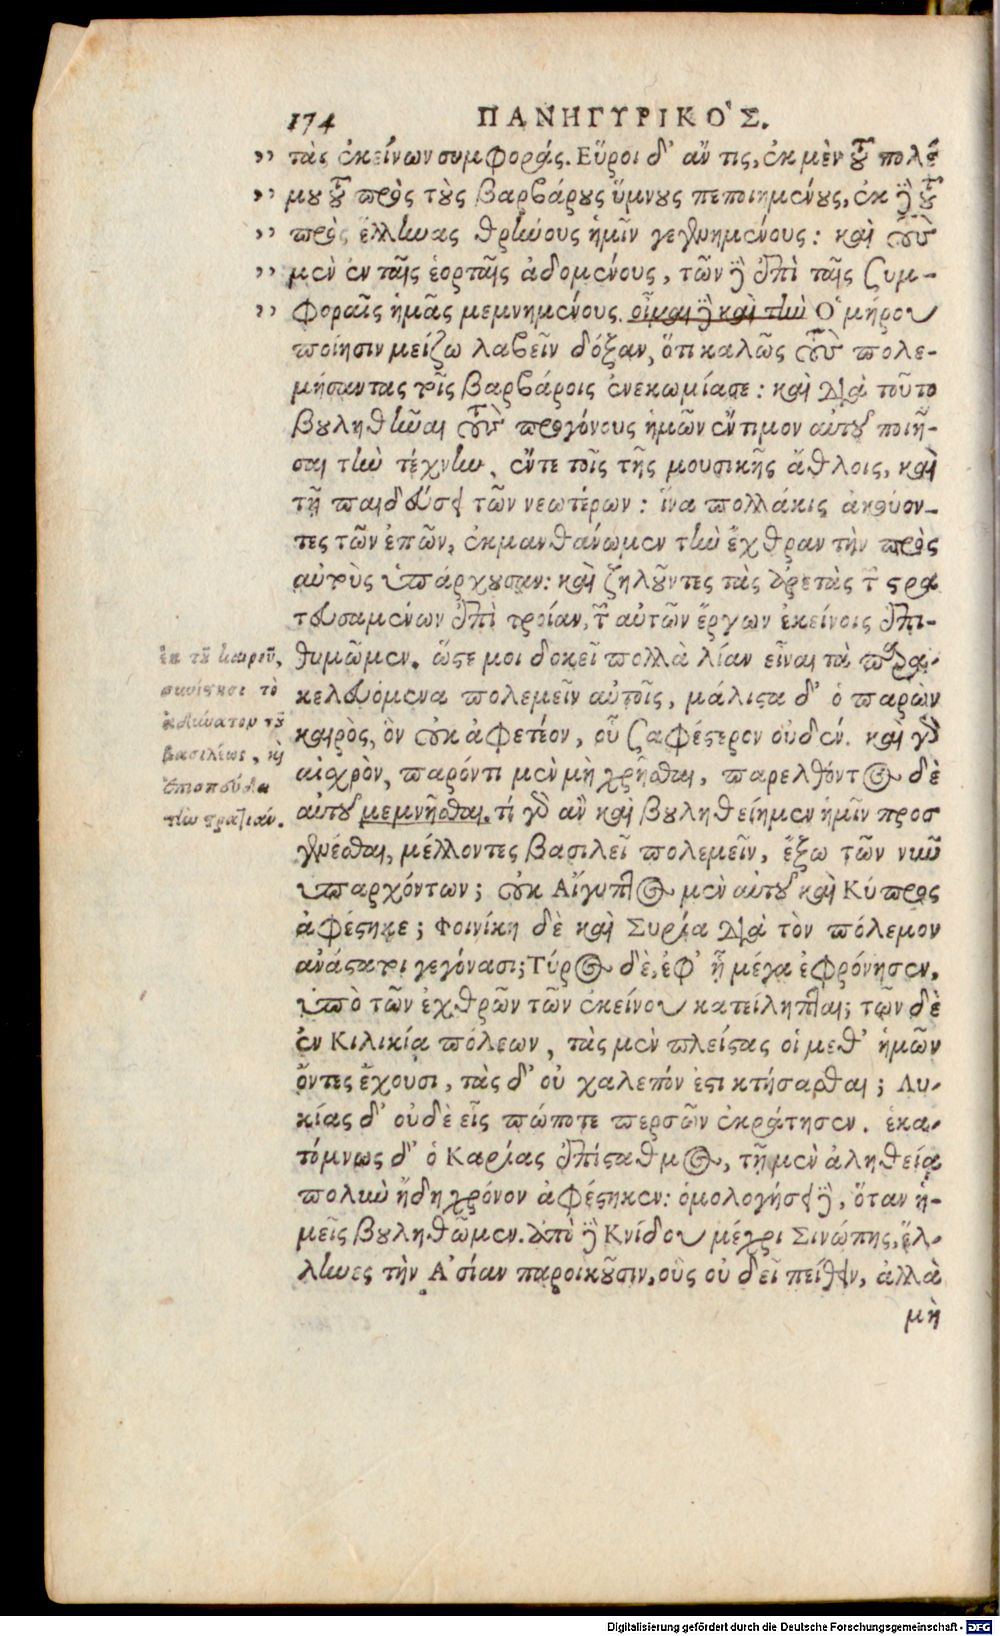 174 ΠΑΝΗΓΥΡΙΚΟ῾Σ.
„ τὰς ἐκείνων συμφοράς. Εὕροι δ' ἄν τις, ἐκ μὲν τοῦ πολέ
„ μου τοῦ πρὸς τοὺς βαρβάρους ὕμνους πεποιημένους, ἐκ δὲ τοῦ
„ πρὸς ἕλληνας θρήνους ἡμῖν γεγενημένους: καὶ τοὺς
„ μὲν ἐν ταῖς ἑορταῖς ἀδομένους, τῶν δὲ ἐπὶ ταῖς συμ-
„ φοραῖς ἡμᾶς μεμνημένους. οἶμαι δὲ καὶ τὴν Ὁμήρου
ποίησιν μείζω λαβεῖν δόξαν, ὅτι καλῶς τοὺς πολε-
μήσαντας τοῖς βαρβάροις ἐνεκωμίασε: καὶ διὰ τοῦτο
βουληθῆναι τοὺς προγόνους ἡμῶν ἔντιμον αὐτοῦ ποιῆ-
σαι τὴν τέχνην, ἔντε τοῖς τῆς μουσικῆς ἄθλοις, καὶ
τῇ παιδεύσει τῶν νεωτέρων: ἵνα πολλάκις ἀκούον-
τες τῶν ἐπῶν, ἐκμανθάνωμεν τὴν ἔχθραν τὴν πρὸς
αὐτοὺς ὑπάρχουσαν: καὶ ζηλοῦντες τὰς ἀρετὰς τῶν στρα
τευσαμένων ἐπὶ τροίαν, τῶν αὐτῶν ἔργων ἐκείνοις ἐπι-
θυμῶμεν. ὥστε μοι δοκεῖ πολλὰ λίαν εἶναι τὰ παρα-
κελευόμενα πολεμεῖν αὐτοῖς, μάλιστα δ' ὁ παρὼν
καιρὸς, ὃν οὐκ ἀφετέον, οὗ σαφέστερον οὐδέν. καὶ γὰρ
αἰσχρὸν, παρόντι μὲν μὴ χρῆσθαι, παρελθόντος δὲ
αὐτοῦ μεμνῆσθαι. τί γὰρ ἂν καὶ βουληθείημεν ἡμῖν προσ
γενέσθαι, μέλλοντες βασιλεῖ πολεμεῖν, ἔξω τῶν νῦν
ὑπαρχόντων; οὐκ Αἴγυπτος μὲν αὐτοῦ καὶ Κύπρος
ἀφέστηκε; Φοινίκη δὲ καὶ Συρία διὰ τὸν πόλεμον
ἀνάστατοι γεγόνασι; Τύρος δὲ, ἐφ' ᾗ μέγα ἐφρόνησεν,
ὑπὸ τῶν ἐχθρῶν τῶν ἐκείνου κατείληπται; τῶν δὲ
ἐν Κιλικίᾳ πόλεων, τὰς μὲν πλείστας οἱ μεθ' ἡμῶν
ὄντες ἔχουσι, τὰς δ' οὐ χαλεπόν ἐστι κτήσασθαι; Λυ-
κίας δ' οὐδὲ εἷς πώποτε περσῶν ἐκράτησεν. ἑκα-
τόμνως δ' ὁ Καρίας ἐπίσταθμος, τῇ μὲν ἀληθείᾳ
πολὺν ἤδη χρόνον ἀφέστηκεν: ὁμολογήσει δὲ, ὅταν ἡ-
μεῖς βουληθῶμεν. ἀπὸ δὲ Κνίδου μέχρι Σινώπης, ἕλ-
ληνες τὴν Ἀσίαν παροικοῦσιν, οὓς οὐ δεῖ πείθειν, ἀλλὰ
μὴ
ἐκ τοῦ καιροῦ,
συνίστησι τὸ
ἀδύνατον τοῦ
βασιλέως, καὶ
ἐπισπεύδει
τὴν πρᾶξιν.
Digitalisierung gefördert durch die Deutsche Forschungsgemeinschaft - DFG